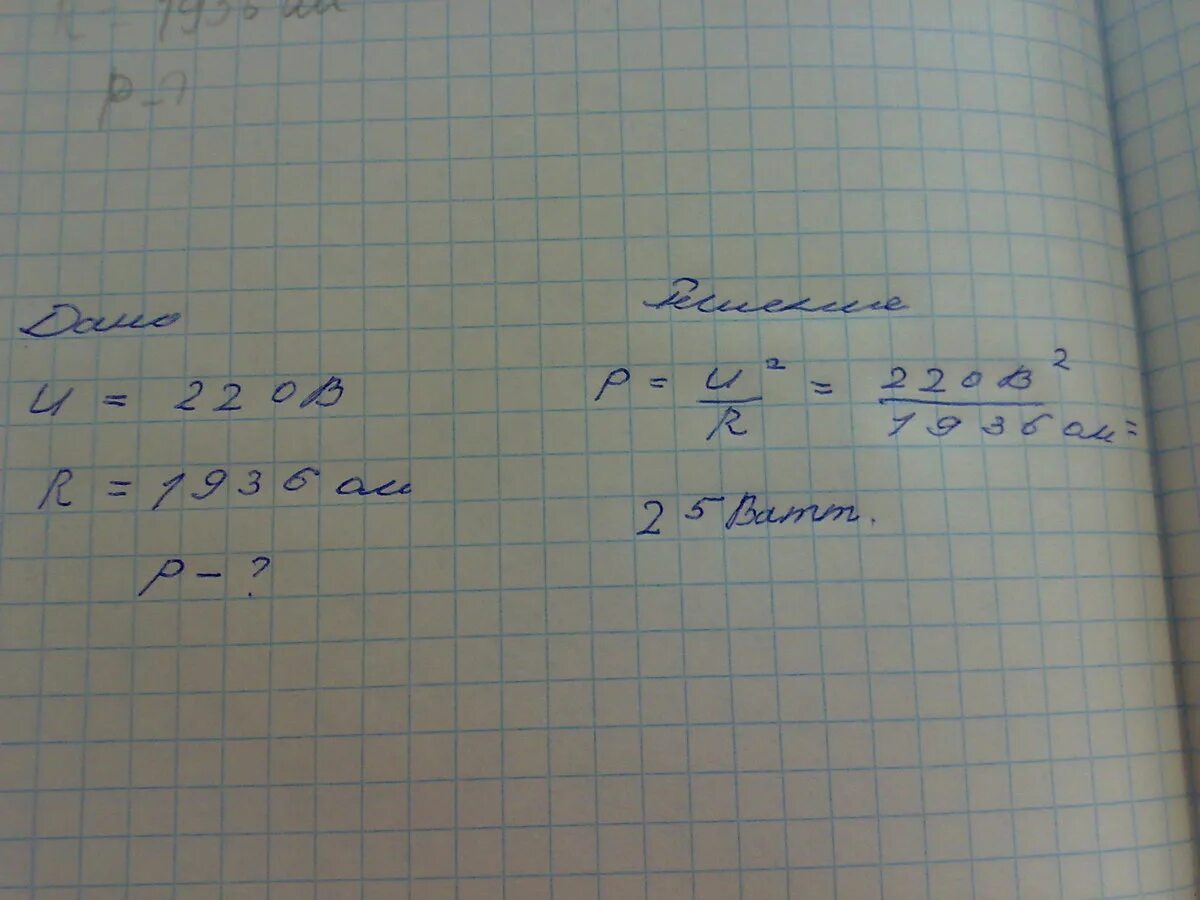 R = 1936 ом
P - ?
Дано
U = 220В
R = 1936 ом
P - ?
Решение
P = U² / R = 220В² / 1936 ом =
25 Ватт.